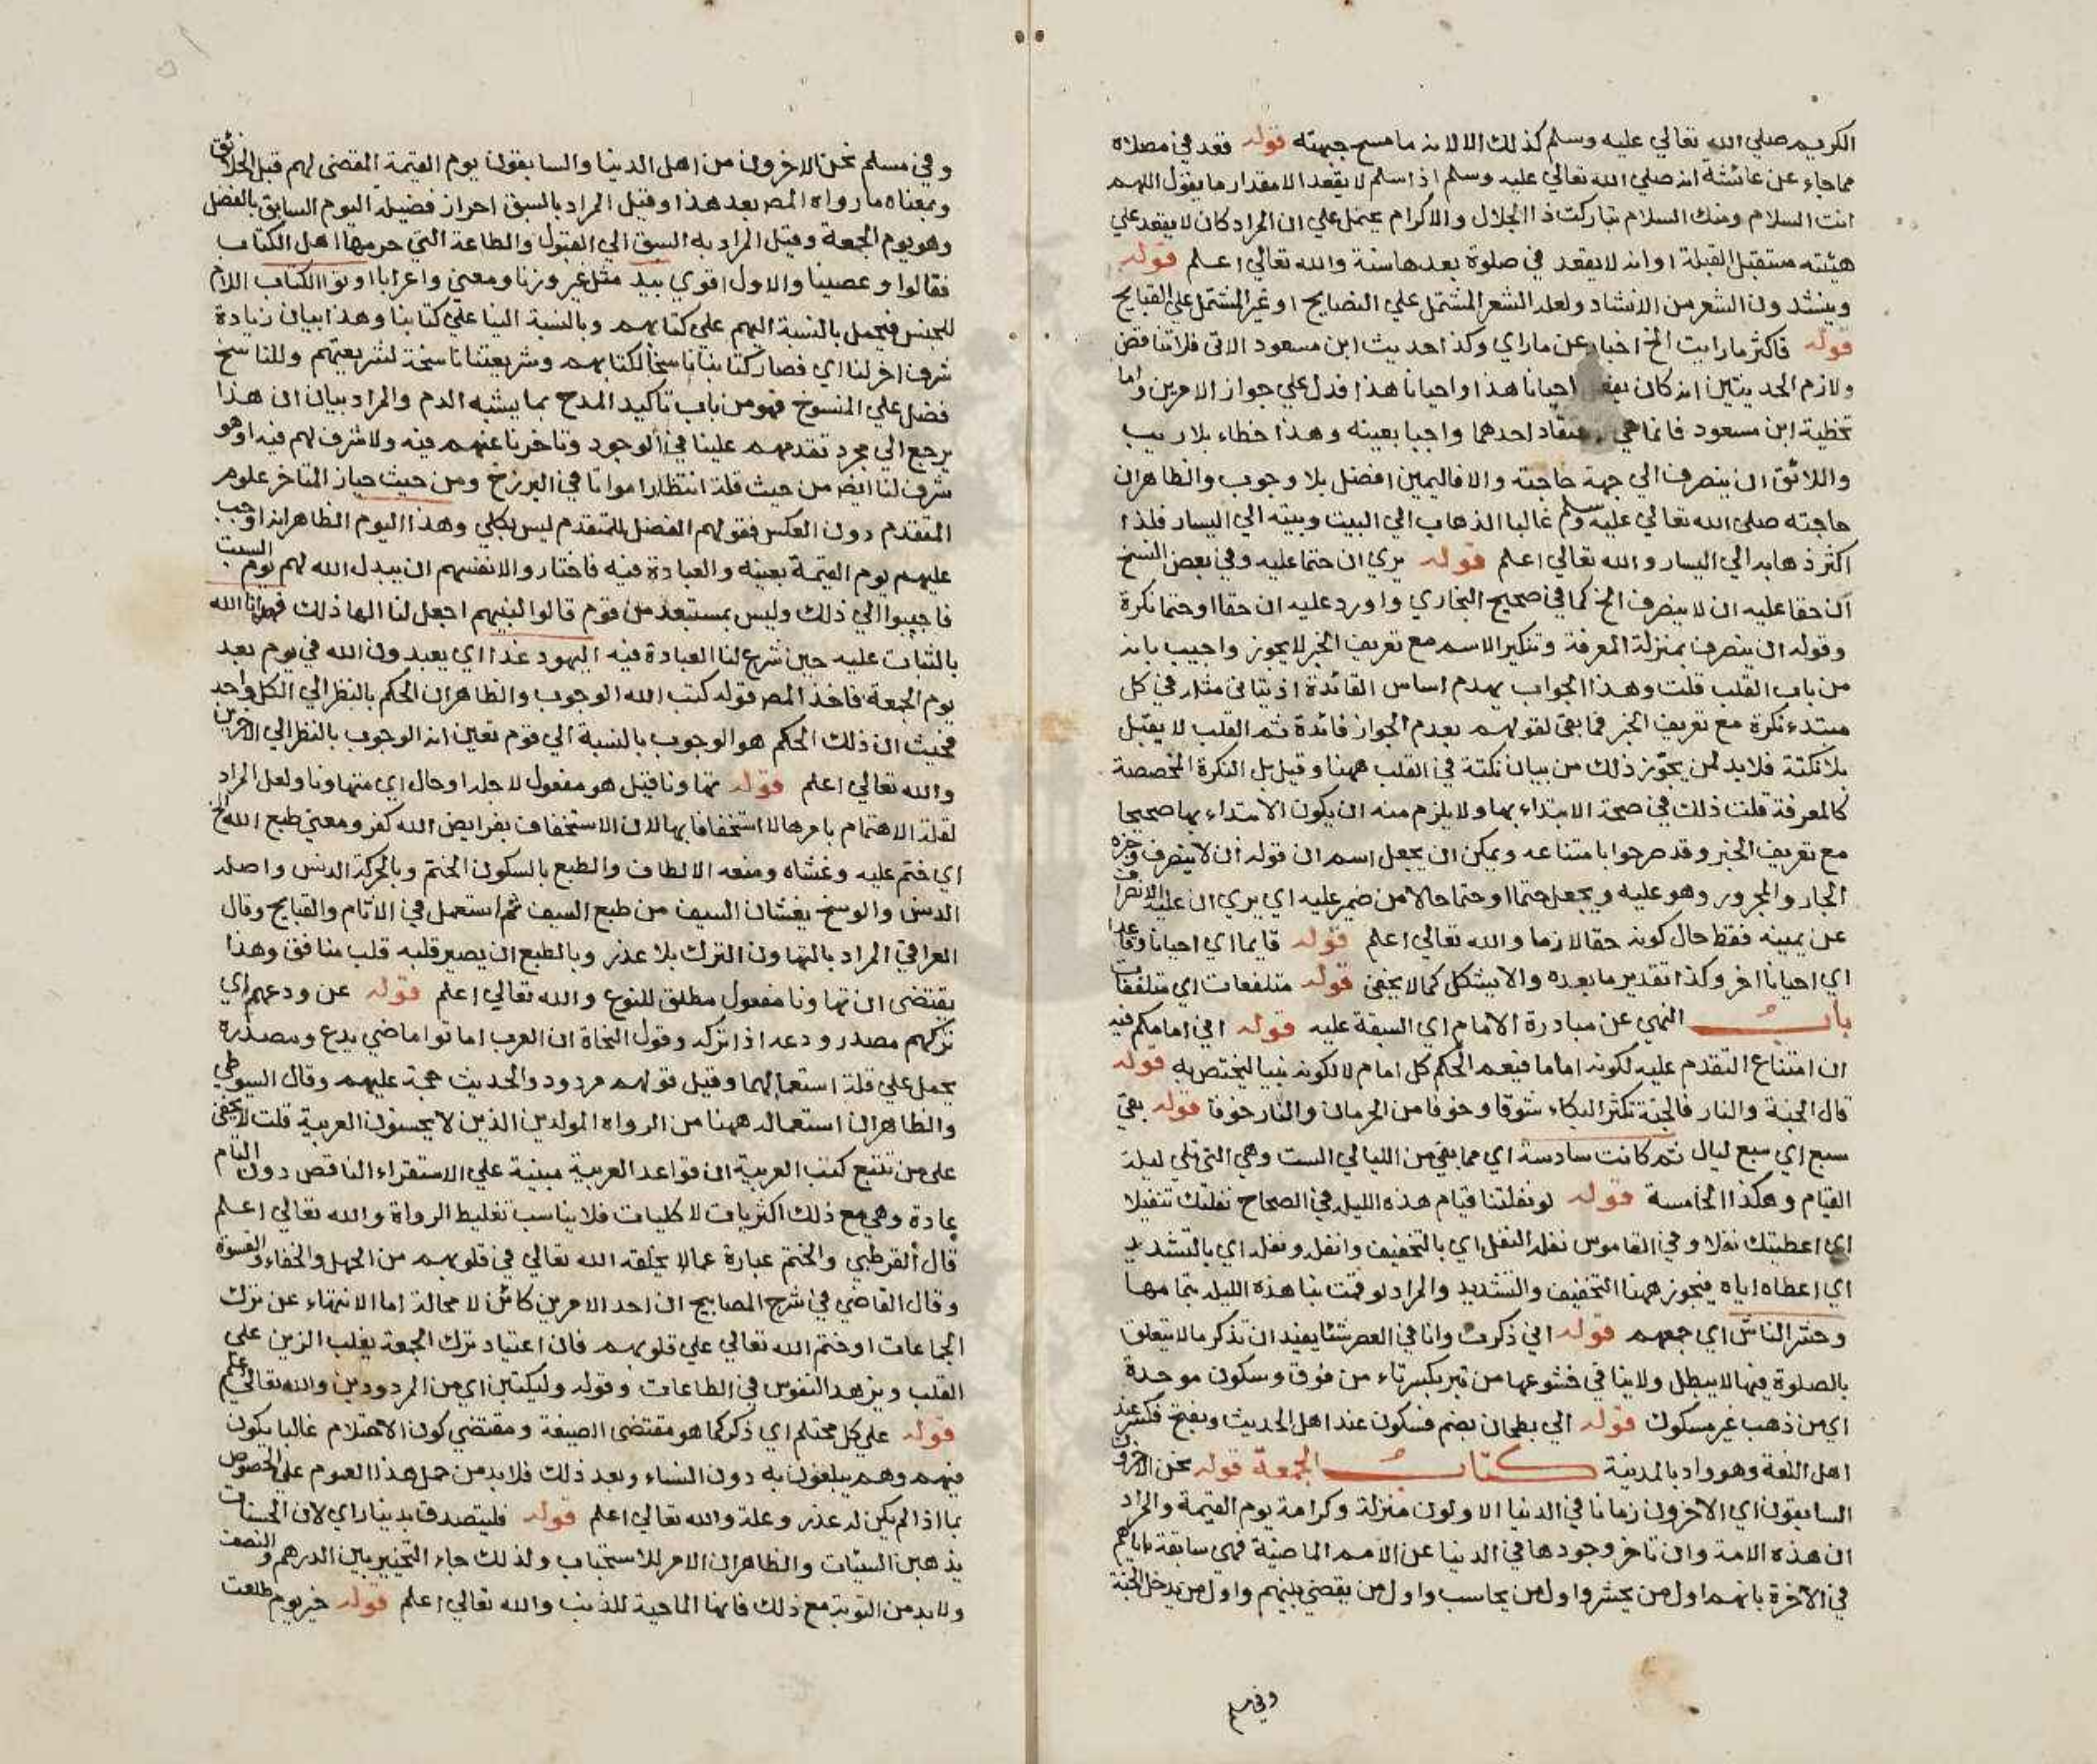 الكريم صلي الله تعالي عليه وسلم كذلك الا لانه ما مسح جبهته قوله قعد في مصلاه
مما جاء عن عائشة انه صلي الله تعالي عليه وسلم اذا سلم لا يقعد الا مقدار ما يقول اللهم
انت السلام ومنك السلام تباركت ذا الجلال والاكرام يحتمل علي ان المراد كان لا يقعد علي
هيئته مستقبل القبلة او انه لا يقعد في صلوة بعدها سنة والله تعالي اعلم قوله
وينشدون الشعر من الانشاد ولعله الشعر المشتمل علي النصايح او غير المشتمل علي القبايح
قوله فاكثر ما رايت الخ اخبار عن ما راي وكذا حديث ابن مسعود الاتي فلا تناقض
ولازم الحديثين انه كان يفعل احيانا هذا واحيانا هذا فدل علي جواز الامرين واما
تخطية ابن مسعود فانما هي اعتقاد احدهما واجبا بعينه وهذا خطاء بلا ريب
واللائق ان ينصرف الي جهة حاجته والا فاليمين افضل بلا وجوب والظاهر ان
حاجته صلي الله تعالي عليه وسلم غالبا الذهاب الي البيت وبيته الي اليسار فلذا
اكثر ذهابه الي اليسار والله تعالي اعلم قوله يري ان حتما عليه وفي بعض النسخ
ان حقا عليه ان لا ينصرف الخ كما في صحيح البخاري واورد عليه ان حقا او حتما نكرة
وقوله ان ينصرف بمنزلة المعرفة وتنكير الاسم مع تعريف الخبر لا يجوز واجيب بانه
من باب القلب قلت وهذا الجواب يهدم اساس القائدة اذ يتاتي مثله في كل
مبتدء نكرة مع تعريف الخبر فما بقي لقولهم بعدم الجواز فائدة ثم القلب لا يقبل
بلا نكتة فلابد لمن يجوز ذلك من بيان نكتة في القلب ههنا وقيل بل النكرة المخصصة
كالمعرفة قلت ذلك في صحة الابتداء بها ولا يلزم منه ان يكون الابتداء بها صحيحا
مع تعريف الخبر وقد صرحوا بامتناعه ويمكن ان يجعل اسم ان قوله ان لا ينصرف وخبره
الجار والمجرور وهو عليه ويجعل حتما او حتما حالا من ضمير عليه اي يري ان عليه الانصراف
عن يمينه فقط حال كونه حقا لازما والله تعالي اعلم قوله قايما اي احيانا وقاعدا
اي احيانا اخر وكذا تقدير ما بعده والا يشكل كما لا يخفي قوله متلفعات اي متلففات
باب النهي عن مبادرة الامام اي السبقة عليه قوله اني امامكم فيه
ان امتناع التقدم عليه لكونه اماما فيعم الحكم كل امام لا لكونه نبيا ليختص به قوله
قال الجنة والنار فالجنة تكثر البكاء شوقا وخوفا من الحرمان والنار خوفا قوله بقي
سبع اي سبع ليال ثم كانت سادسة اي مما بقي من الليالي الست وهي التي تلي ليلة
القيام وهكذا الخامسة قوله لو نفلتنا قيام هذه الليله في الصحاح نفلتك تنفيلا
اي اعطيتك نفلا وفي القاموس نفله النفل اي بالتخفيف وانفله ونفله اي بالتشديد
اي اعطاه اياه فيجوز ههنا التخفيف والتشديد والمراد لو قمت بنا هذه الليلة بتمامها
وحشر الناس اي جمعهم قوله اني ذكرت وانا في العصر شئا يفيد ان تذكر ما لا يتعلق
بالصلوة فيها لا يبطل ولا ينافي خشوعها من تبر بكسر تاء من فوق وسكون موحدة
اي من ذهب غير مسكوك قوله الي بطحان بضم فسكون عند اهل الحديث وبفتح فكسر عند
اهل اللغة وهو واد بالمدينة كتاب الجمعة قوله نحن الاخرون
السابقون اي الاخرون زمانا في الدنيا الاولون منزلة وكرامة يوم القيمة والمراد
ان هذه الامة وان تاخر وجودها في الدنيا عن الامم الماضية فهي سابقة اياهم
في الاخرة بانهم اول من يحشر واول من يحاسب واول من يقضي بينهم واول من يدخل الجنة
وفي مسلم
وفي مسلم نحن الاخرون من اهل الدنيا والسابقون يوم القيمة المقضي لهم قبل الخلائق
ومعناه ما رواه المص بعد هذا وقيل المراد بالسبق احراز فضيلة اليوم السابق بالفضل
وهو يوم الجمعة وقيل المراد به السبق الي القبول والطاعة التي حرمها اهل الكتاب
فقالوا وعصينا والاول اقوي بيد مثل غير وزنا ومعني واعرابا اوتوا الكتاب اللام
للجنس فيحمل بالنسبة اليهم علي كتابهم وبالنسبة الينا علي كتابنا وهذا بيان زيادة
شرف اخر لنا اي فصار كتابنا ناسخا لكتابهم وشريعتنا ناسخة لشريعتهم وللناسخ
فضل علي المنسوخ فهو من باب تاكيد المدح بما يشبه الذم والمراد بيان ان هذا
يرجع الي مجرد تقدمهم علينا في الوجود وتاخرنا عنهم فيه ولا شرف لهم فيه او هو
شرف لنا ايضا من حيث قلة انتظار امواتنا في البرزخ ومن حيث حياز المتاخر علوم
المتقدم دون العكس فقولهم الفضل للمتقدم ليس بكلي وهذا اليوم الظاهر انه اوجب
عليهم يوم القيمة بعينه والعبادة فيه فاختاروا لانفسهم ان يبدل الله لهم يوم السبت
فاجيبوا الي ذلك وليس بمستبعد من قوم قالوا لنبيهم اجعل لنا الها ذلك فهدانا الله
بالثبات عليه حين شرع لنا العبادة فيه اليهود غدا اي يعبدون الله في يوم بعد
يوم الجمعة فاخذ المص قوله كتب الله الوجوب والظاهر ان الحكم بالنظر الي الكل واحد
فحيث ان ذلك الحكم هو الوجوب بالنسبة الي قوم تعين انه الوجوب بالنظر الي الاخرين
والله تعالي اعلم قوله تهاونا قيل هو مفعول لاجله او حال اي متهاونا ولعل المراد
لقلة الاهتمام بامرها لا استخفافا بها لان الاستخفاف بفرايض الله كفر ومعني طبع الله الخ
اي ختم عليه وغشاه ومنعه الالطاف والطبع بالسكون الختم وبالحركة الدنس واصله
الدنس والوسخ يغشان السيف من طبع السيف ثم استعمل في الاثام والقبايح وقال
العراقي المراد بالتهاون الترك بلا عذر وبالطبع ان يصير قلبه قلب منافق وهذا
يقتضي ان تهاونا مفعول مطلق للنوع والله تعالي اعلم قوله عن ودعهم اي
تركهم مصدر ودعه اذا تركه وقول النحاة ان العرب اماتوا ماضي يدع ومصدره
يحمل علي قلة استعمالهما وقيل قولهم مردود والحديث حجة عليهم وقال السيوطي
والظاهر ان استعماله ههنا من الرواه المولدين الذين لا يحسنون العربية قلت لا يخفي
علي من تتبع كتب العربية ان قواعد العربية مبنية علي الاستقراء الناقص دون التام
عادة وهي مع ذلك اكثريات لا كليات فلا يناسب تغليط الرواة والله تعالي اعلم
قال القرطبي والختم عبارة عما لا يخلقه الله تعالي في قلوبهم من الجهل والجفاء والقسوة
وقال القاضي في شرح المصابيح ان احد الامرين كائن لا محالة اما الانتهاء عن ترك
الجماعات او ختم الله تعالي علي قلوبهم فان اعتياد ترك الجمعة يغلب الرين علي
القلب ويزهد النفوس في الطاعات وقوله وليكتبن اي من المردودين والله تعالي اعلم
قوله علي كل محتلم اي ذكر كما هو مقتضي الصيغة ومقتضي كون الاحتلام غالبا يكون
فيهم وهم يبلغون به دون النساء وبعد ذلك فلابد من حمل هذا العموم علي الخصوص
بما اذا لم يكن له عذر وعلة والله تعالي اعلم قوله فليتصدق بدينار اي لان الحسنات
يذهبن السيئات والظاهر ان الامر للاستحباب ولذلك جاء التخيير بين الدرهم والنصف
ولابد من التوبة مع ذلك فانها الماحية للذنب والله تعالي اعلم قوله خير يوم طلعت